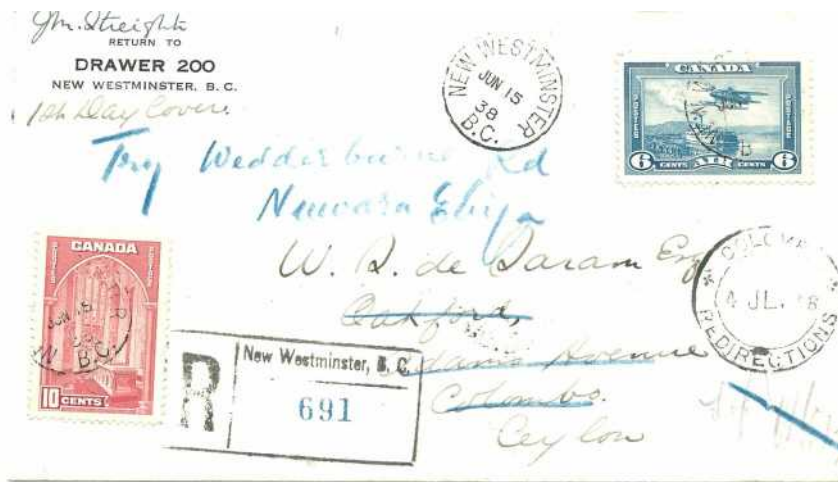 Jm. Streight
RETURN TO
DRAWER 200
NEW WESTMINSTER, B. C.
1st Day Covers
NEW WESTMINSTER
JUN 15
38
B.C.
CANADA
POSTES POSTAGE
6 CENTS AIR CENTS 6
Try Wedderburne Rd
Nuwara Eliya
W. R. de Saram Esq
Oakford,
Avenue
Colombo.
Ceylon
4 JL. 38
REDIRECTIONS
CANADA
POSTES POSTAGE
JUN 15
B.C.
10 CENTS
R
New Westminster, B. C.
691